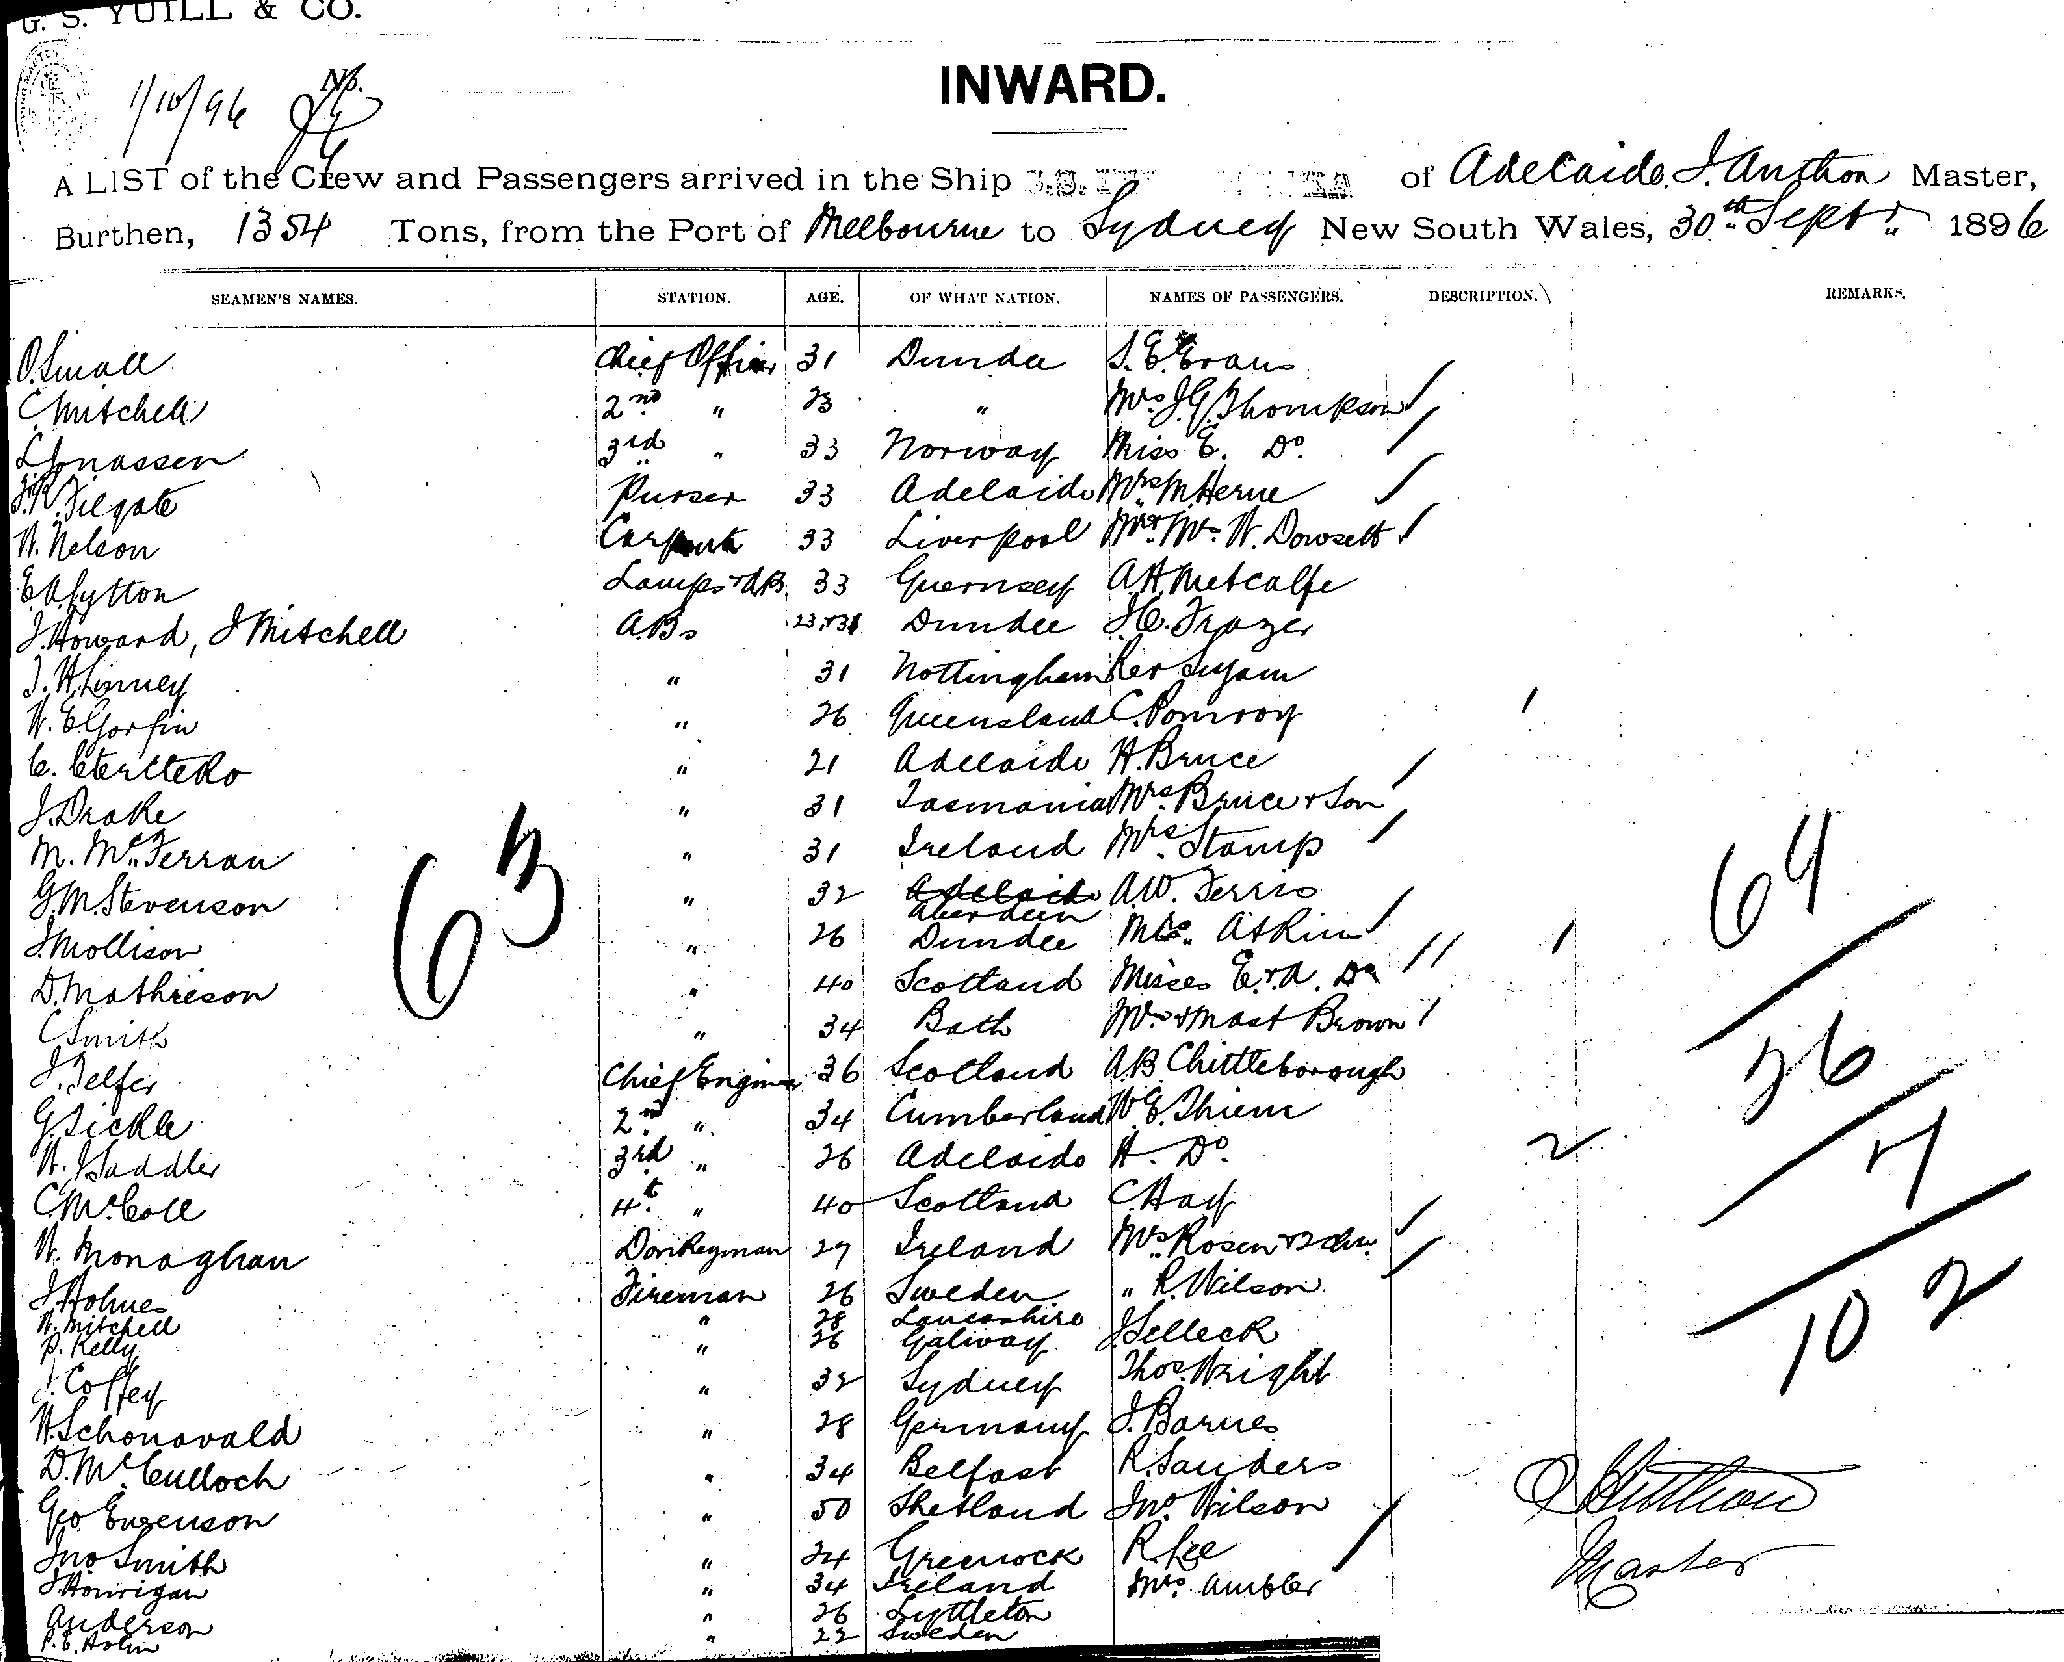 G. S. YUILL & CO.
1/10/96
No.
INWARD.
A LIST of the Crew and Passengers arrived in the Ship S.S. of Adelaide, Master,
Burthen, 1354 Tons, from the Port of Melbourne to Sydney New South Wales, 30th Septr. 1896
SEAMEN'S NAMES. STATION. AGE. OF WHAT NATION. NAMES OF PASSENGERS. DESCRIPTION. REMARKS.
O. Small Chief Officer 31 Dundee S. E. Evans
C. Mitchell 2nd " 23 " Mrs J. G. Thompson
L. Jonassen 3rd " 33 Norway Miss E. Do.
Filgate Purser 33 Adelaide Mrs M. Herne
W. Nelson 33 Liverpool Mr Mrs W. Dowsett
E. A. Lytton Lamps & AB. 33 Guernsey A. H. Metcalfe
J. Howard, J Mitchell A.Bs Dundee J. C. Frazer
J. H. Linney " 31 Nottingham Rev
W. E. Gorfin " 26 Queensland C. Pomroy
C. " 21 Adelaide H. Bruce
J. Drake " 31 Tasmania Mrs Bruce & Son
M. McFerran " 31 Ireland Mrs. Stamp
G. M. Stevenson " 32 Adelaide Aberdeen A. W. Ferris
J. Mollison " 26 Dundee Atkin
D. Mathieson " 40 Scotland Misses E. & A. Do
C Smith " 34 Bath Mrs & Mast Brown
J. Telfer Chief Engineer 36 Scotland A. B Chittleborough
G. Sickle 2nd " 34 Cumberland W. E. Thiem
W. J Saddler 3rd " 26 Adelaide H. Do. 2
C. McColl 4t. " 40 Scotland C. Hay
W. Monaghan Donkeyman 27 Ireland Mrs. Rosen & 2 chn.
J Holmes Fireman 26 Sweden " R. Wilson
W. Mitchell " 28 Lancashire
P. Kelly " 26 Galway J Selleck
J. Coffey " 32 Sydney Thos. Wright
H. Schonavald " 28 Germany J. Barnes
D. McCulloch " 34 Belfast R. Sanders
Geo Eugenson " 50 Shetland Jno. Wilson
Jno Smith " 24 Greenock R. Lee
J Hourigan " 34 Ireland Mrs. Ambler
Anderson " 26 Lyttleton
P. E. Holm " 22 Sweden
63
64
36
102
Master